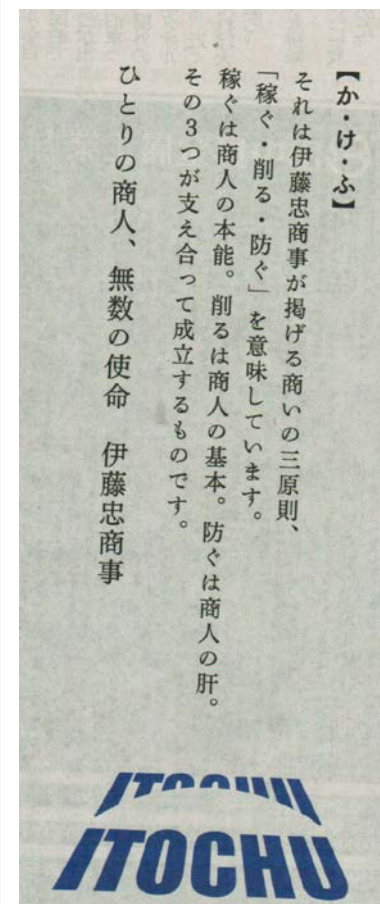 【か・け・ふ】
それは伊藤忠商事が掲げる商いの三原則、
「稼ぐ・削る・防ぐ」を意味しています。
稼ぐは商人の本能。削るは商人の基本。防ぐは商人の肝。
その3つが支え合って成立するものです。
ひとりの商人、無数の使命　伊藤忠商事
ITOCHU
ITOCHU